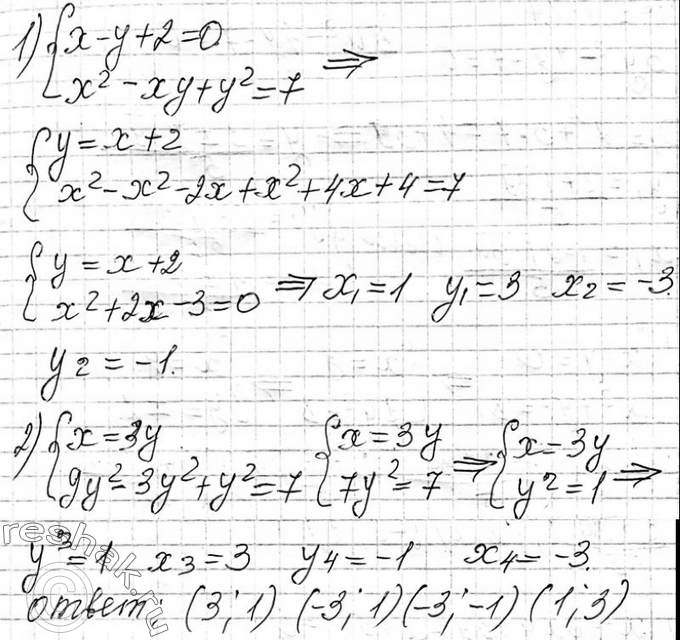 1) { x-y+2=0
x²-xy+y²=7 ⇒
{ y=x+2
x²-x²-2x+x²+4x+4=7
{ y=x+2
x²+2x-3=0 ⇒ x₁=1 y₁=3 x₂=-3.
y₂=-1.
2) { x=3y
9y²-3y²+y²=7 { x=3y
7y²=7 ⇒ { x=3y
y²=1 ⇒
y₃=1 x₃=3 y₄=-1 x₄=-3.
ответ: (3;1) (-3;1) (-3;-1) (1;3)
©reshak.ru